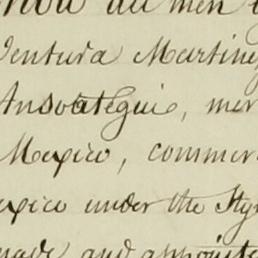 all men
Ventura Martine
Ansoategui, mer
Mexico, commer
exico under the Sty
made and appointe